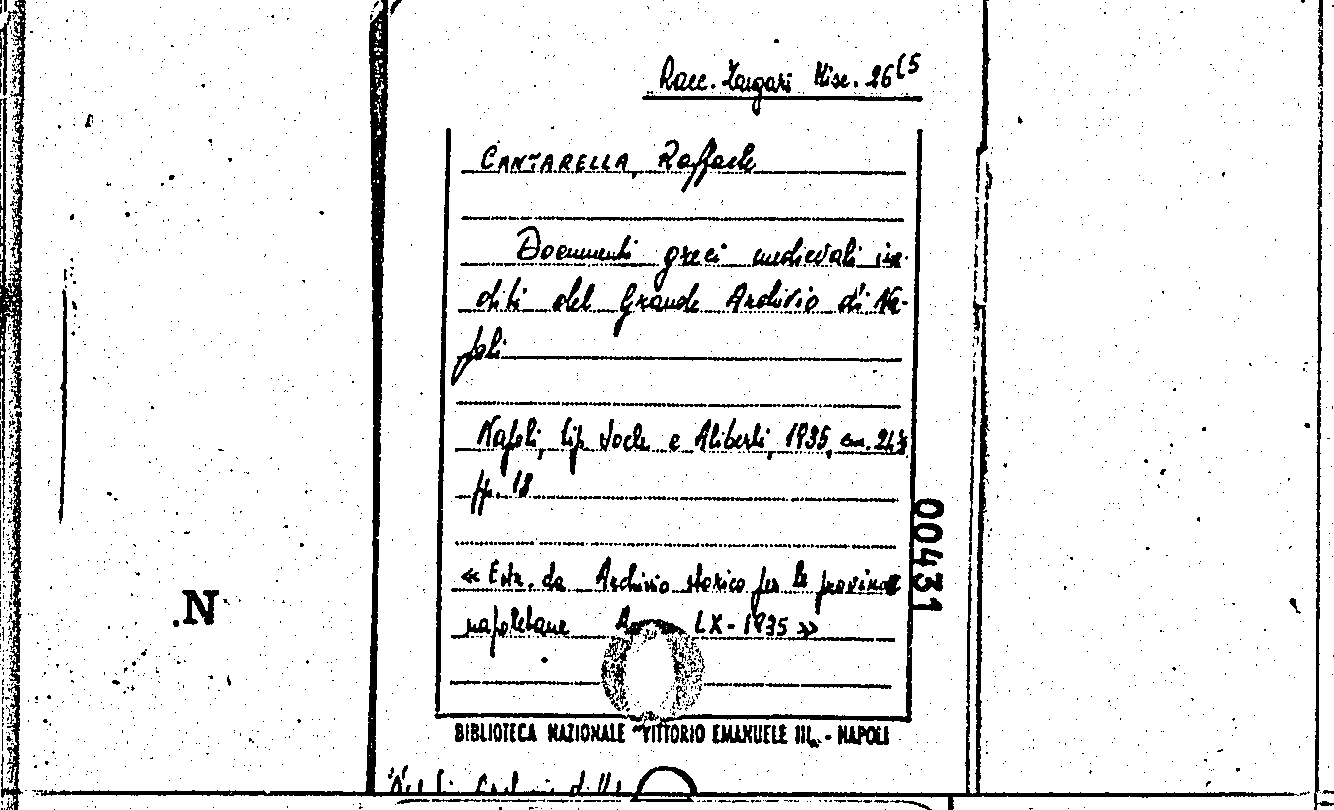 Racc. Zangari Misc. 26(5
CANTARELLA, Raffaele
Documenti greci medievali ine-
diti del Grande Archivio di Na-
poli
Napoli, tip. Jovele e Aliberti, 1935, cm. 24½
pp. 18
« Estr. da Archivio storico per le provincie
napoletane LX - 1935 »
00431
.N
BIBLIOTECA NAZIONALE "VITTORIO EMANUELE III„ - NAPOLI